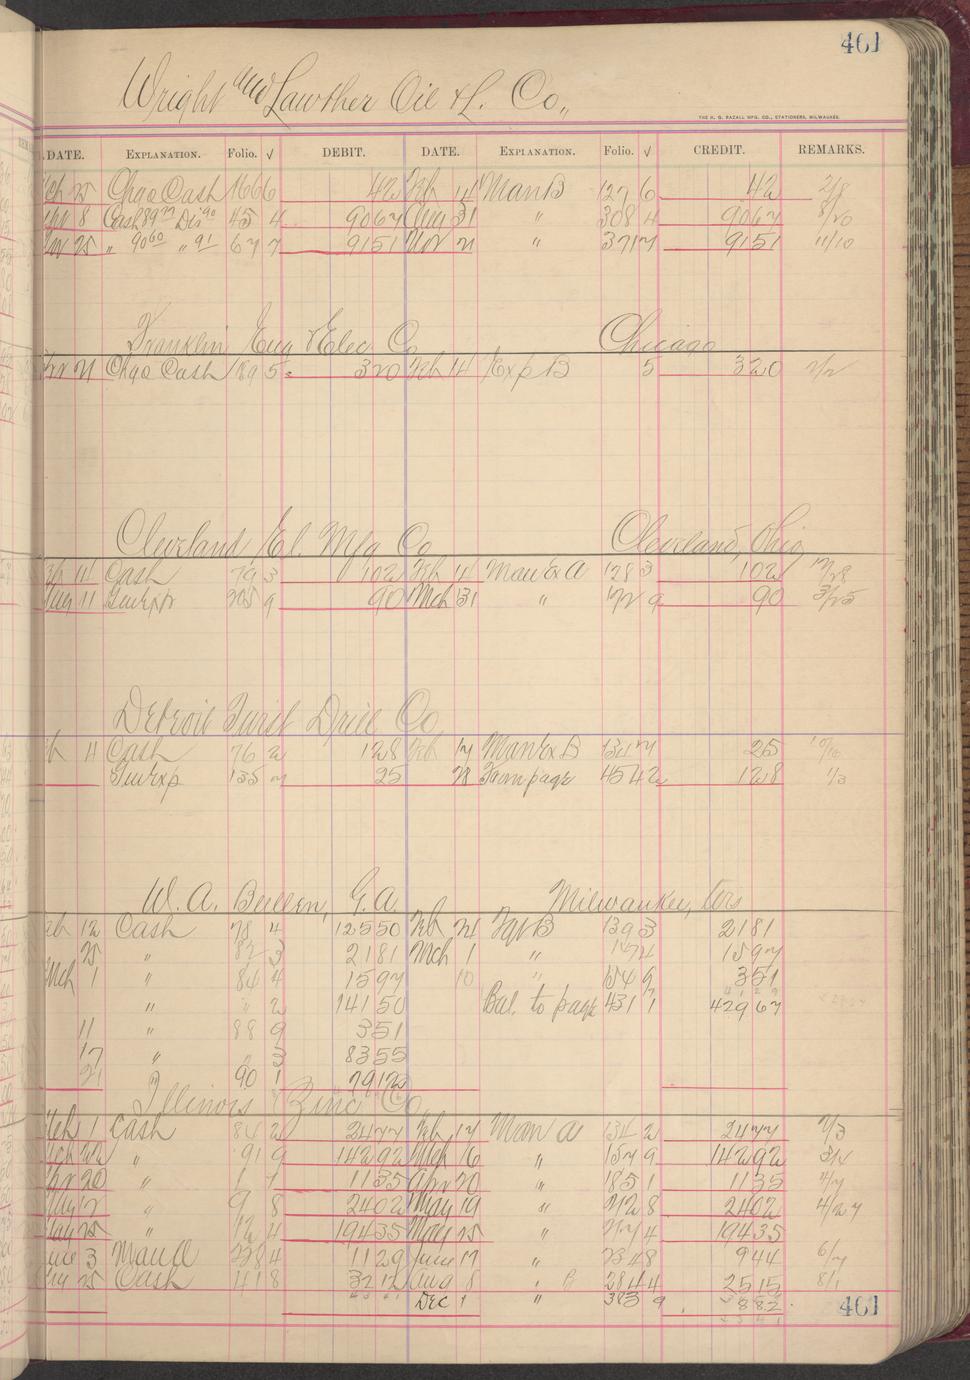 461
Wright and Lawther Oil & L. Co.,
THE H. G. RAZALL MFG. CO., STATIONERS, MILWAUKEE.
DATE. EXPLANATION. Folio. √ DEBIT. DATE. EXPLANATION. Folio. √ CREDIT. REMARKS.
Mch 25 Chgo Cash 166 6 42 Feb 14 Man B 127 6 42 2/8
Apr 8 Cash 89 77 Dis 90 45 4 90 67 Aug 31 " 308 4 90 67 8/20
Nov 25 " 90 60 " 91 67 7 91 51 Nov 21 " 371 7 91 51 11/10
Franklin Eng & Elec Co Chicago
Apr 21 Chgo Cash 189 5 3 20 Feb 14 Exp B 5 3 20 2/2
Cleveland El. Mfg Co Cleveland, Ohio
Feb 11 Cash 79 3 1 02 Feb 14 Man Ex A 128 3 1 02
Aug 11 Gen Exp 305 9 90 Mch 31 " 172 9 90 3/25
Detroit Twist Drill Co
Feb 11 Cash 76 2 1 28 Feb 17 Man Ex B 134 7 25
Gen Exp 135 7 25 28 From page 454 2 1 28 1/3
W. A. Beecen, G.A. Milwaukee, Wis
Feb 12 Cash 78 4 125 50 Feb 24 B 139 3 21 81
25 " 82 3 21 81 Mch 1 " 174 15 97
Mch 1 " 84 4 15 97 10 " 154 9 3 51
" " 2 141 50 Bal. to page 431 1 429 67
11 " 88 9 3 51
17 " " 3 83 55
21 " 90 1 79 12
Illinois Zinc Co
Mch 1 Cash 84 2 24 77 Feb 17 Man A 134 2 24 77 2/3
Mch 22 " 91 9 142 92 Mch 16 " 157 9 142 92
Apr 20 " 1 1 11 35 Apr 20 " 185 1 11 35 4/7
May 17 " 9 8 24 02 May 19 " 212 8 24 02 4/27
May 25 " 12 4 194 35 May 25 " 217 4 194 35
June 3 Man A 238 4 11 29 June 17 " 234 8 9 44 6/7
Aug 25 Cash 41 8 32 12 Aug 8 " B 284 4 25 15 8/1
Dec 1 " 383 9 8 82
461